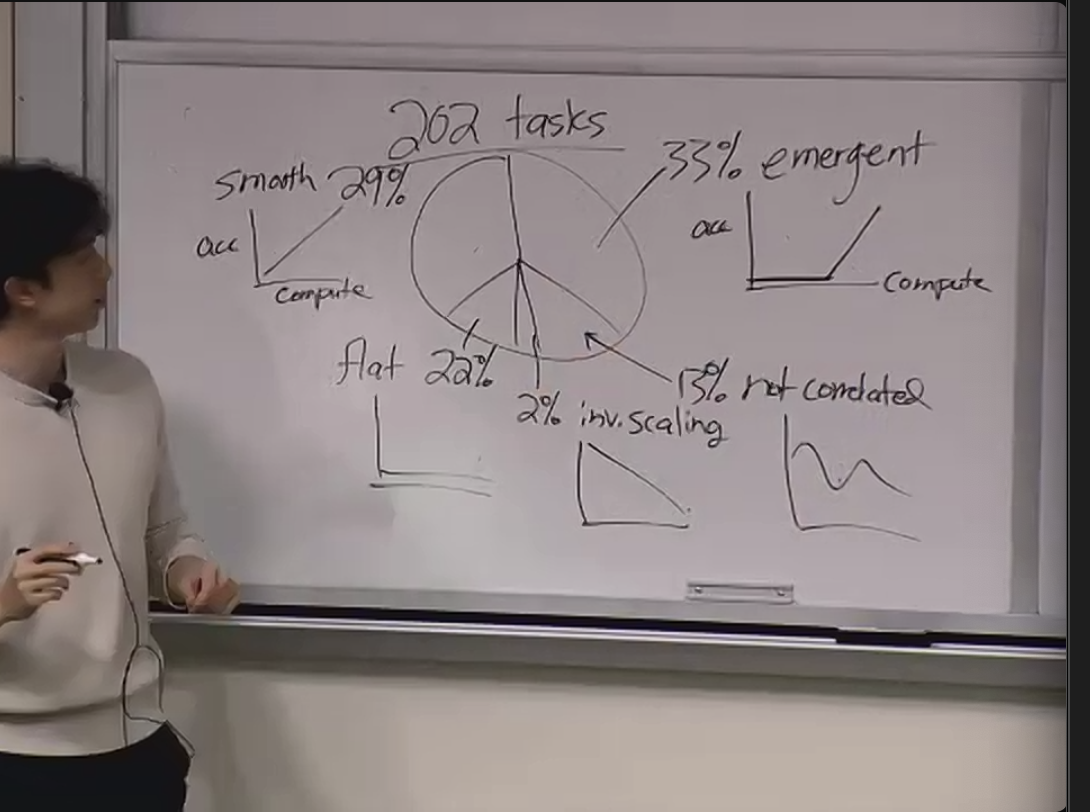 202 tasks
smooth 29%
acc
compute
33% emergent
acc
compute
flat 22%
2% inv. scaling
13% not correlated